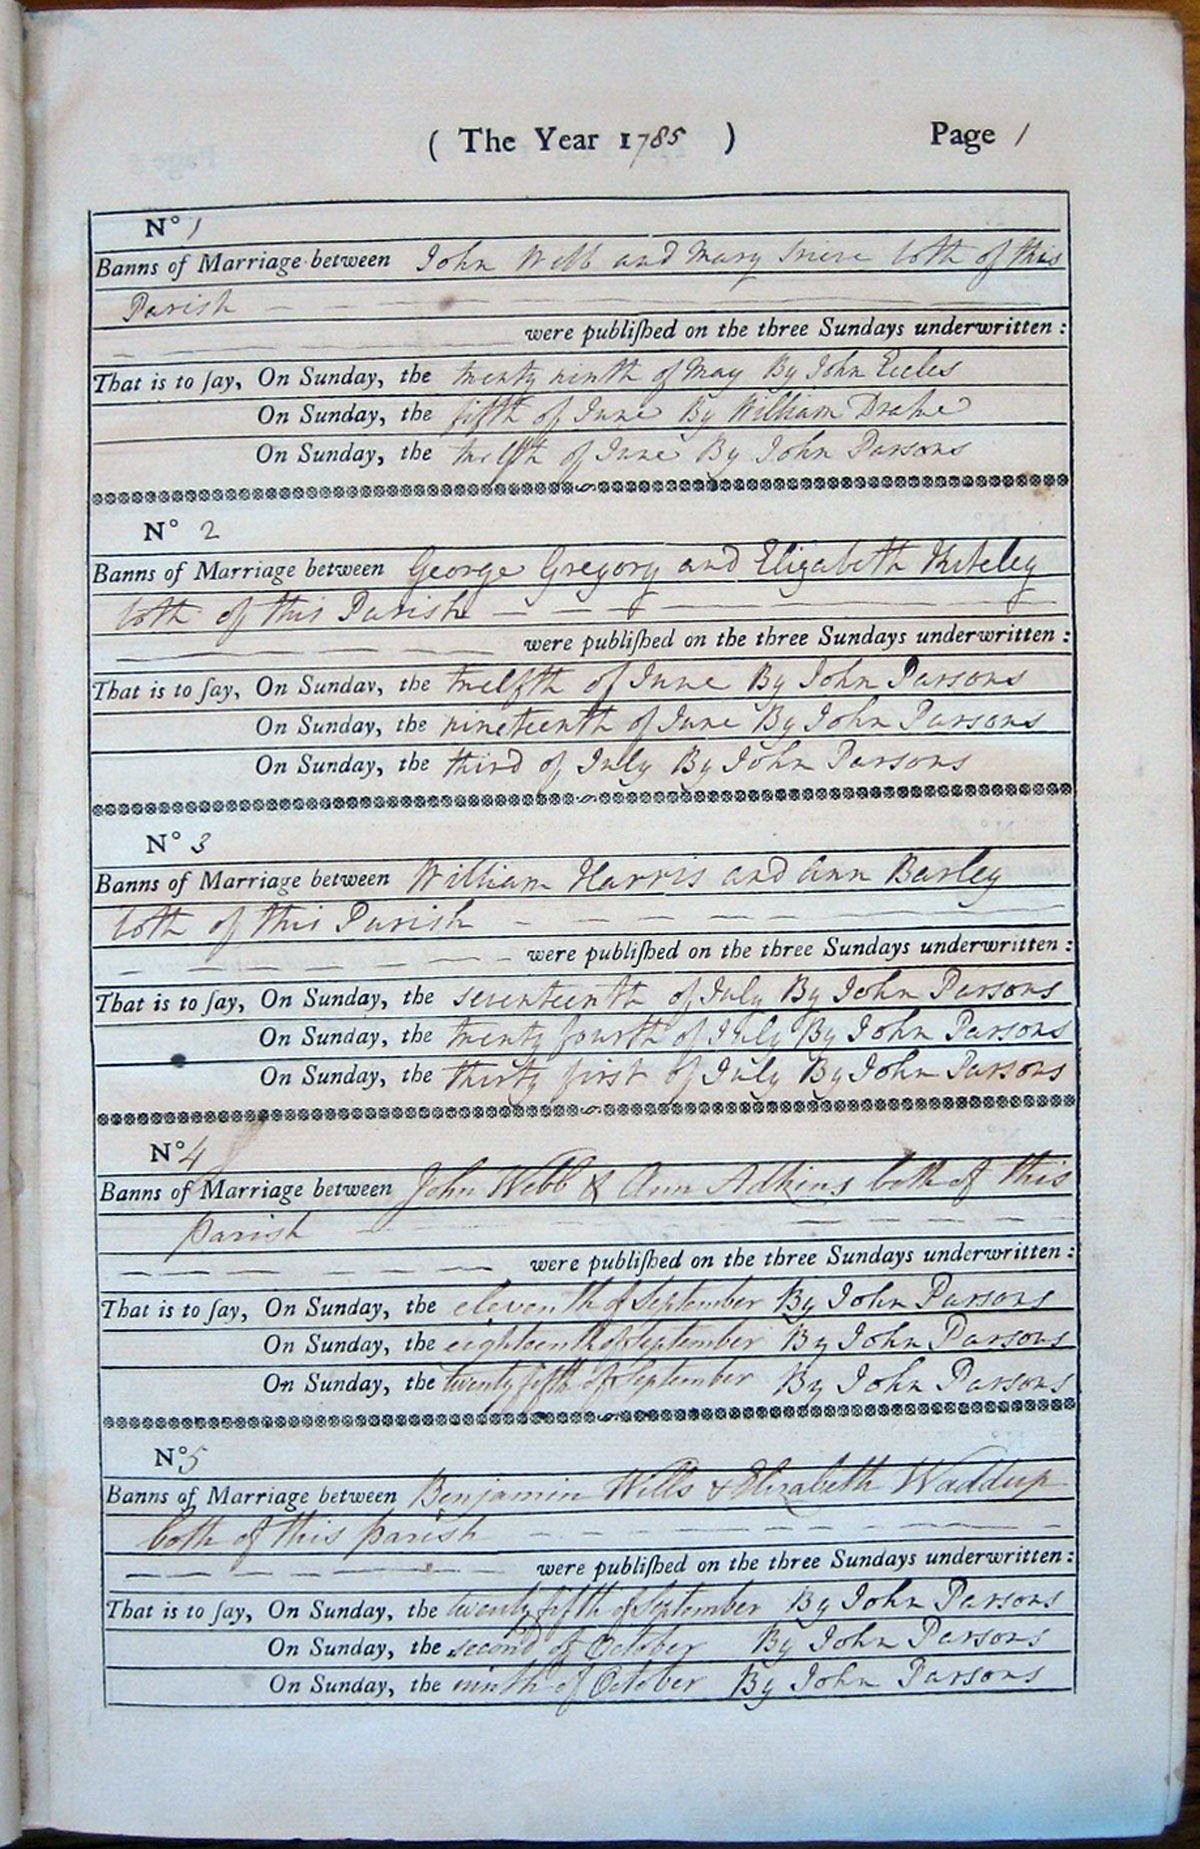 ( The Year 1785 ) Page 1
N° 1
Banns of Marriage between John Webb and Mary both of this
Parish
were publiſhed on the three Sundays underwritten:
That is to ſay, On Sunday, the twenty ninth of May By John Eccles
On Sunday, the fifth of June By William Drake
On Sunday, the twelfth of June By John Parsons
N° 2
Banns of Marriage between George Gregory and Elizabeth
both of this Parish
were publiſhed on the three Sundays underwritten:
That is to ſay, On Sunday, the twelfth of June By John Parsons
On Sunday, the nineteenth of June By John Parsons
On Sunday, the third of July By John Parsons
N° 3
Banns of Marriage between William Harris and Ann Barley
both of this Parish
were publiſhed on the three Sundays underwritten:
That is to ſay, On Sunday, the seventeenth of July By John Parsons
On Sunday, the twenty fourth of July By John Parsons
On Sunday, the thirty first of July By John Parsons
N° 4
Banns of Marriage between John Webb & Ann Adkins both of this
parish
were publiſhed on the three Sundays underwritten:
That is to ſay, On Sunday, the eleventh of September By John Parsons
On Sunday, the eighteenth of September By John Parsons
On Sunday, the twenty fifth of September By John Parsons
N° 5
Banns of Marriage between Benjamin Wills & Elizabeth Waddup
both of this parish
were publiſhed on the three Sundays underwritten:
That is to ſay, On Sunday, the twenty fifth of September By John Parsons
On Sunday, the second of October By John Parsons
On Sunday, the ninth of October By John Parsons